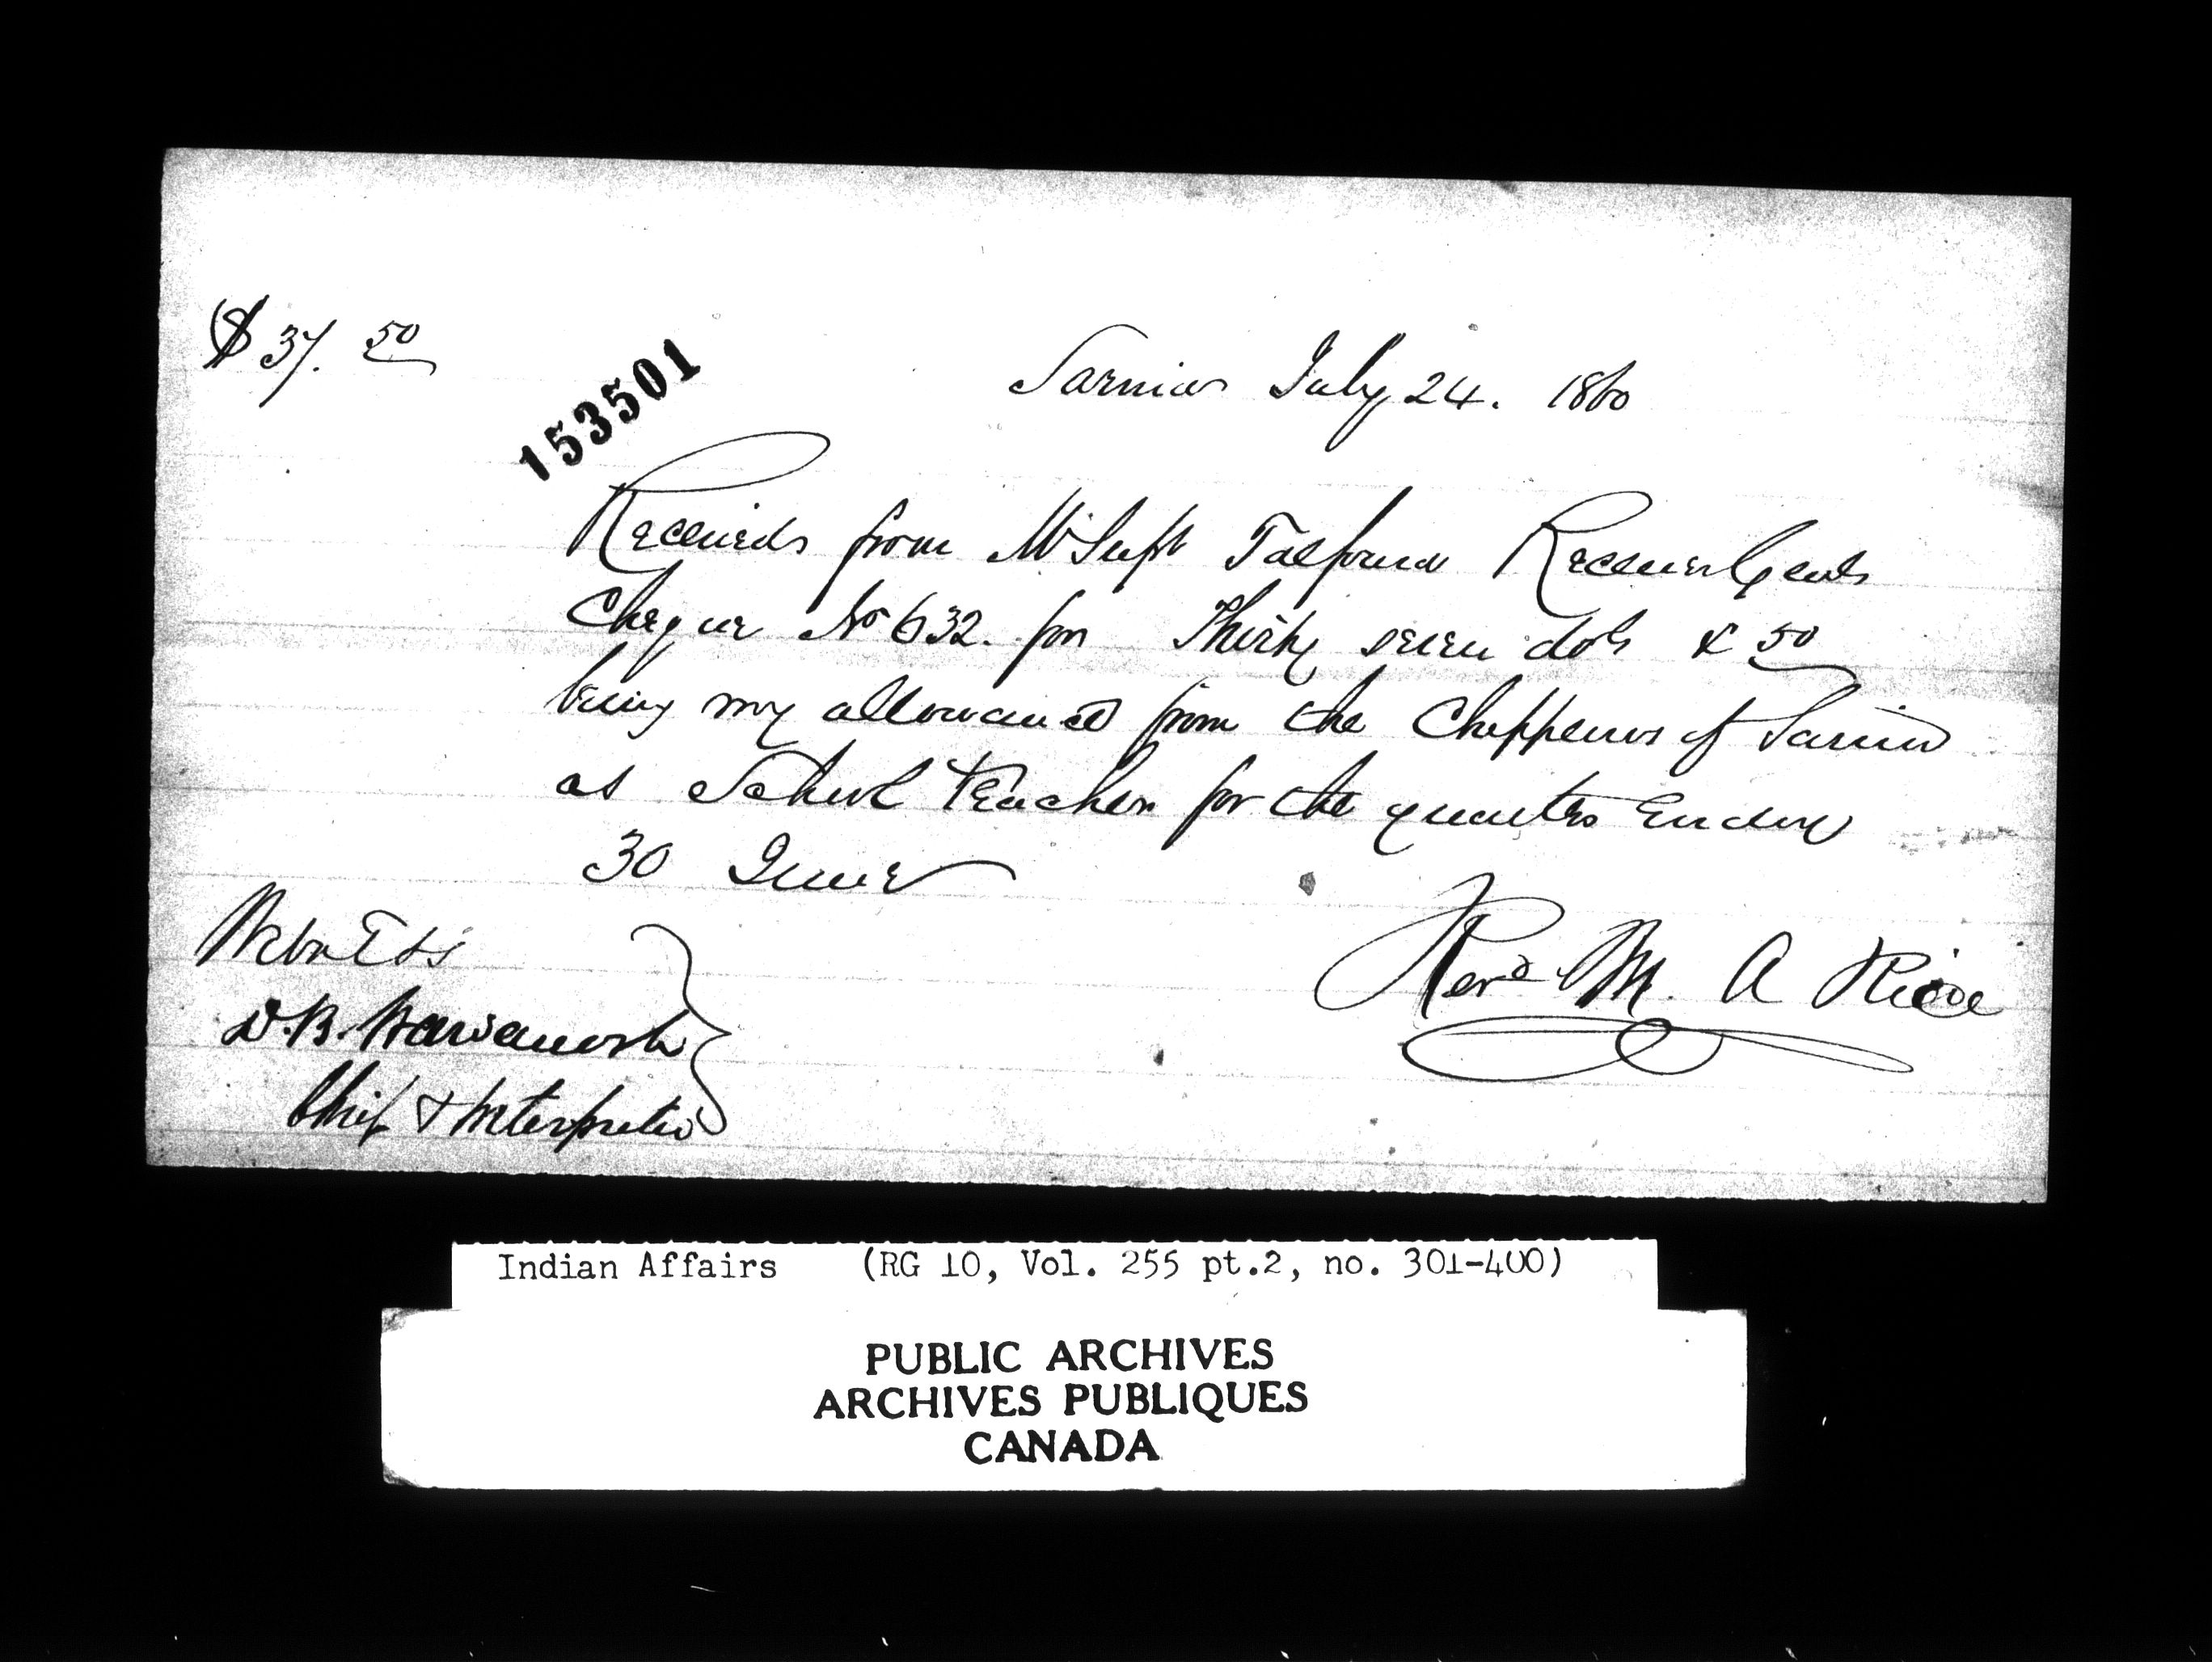 $37. 50
153501
Sarnia July 24. 1860
Received from Mr Supt Talfourd Receiver Genls
Cheque No 632. for Thirty seven dols & 50
being my allowance from the Chippewas of Sarnia
as School Teacher for the quarter Ending
30 June
Witness
D. B. Wawanosh
Chief & Interpreter
Revd M. A
Indian Affairs (RG 10, Vol. 255 pt.2, no. 301-400)
PUBLIC ARCHIVES
ARCHIVES PUBLIQUES
CANADA